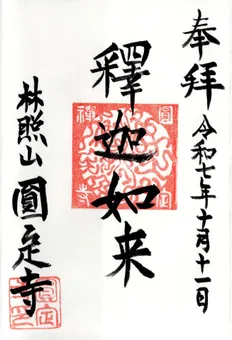 奉拜
令和七年十月十一日
釋迦如来
林照山
圓定寺